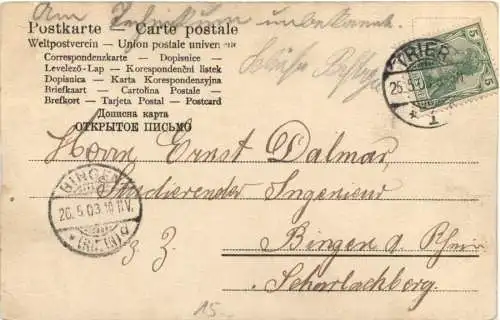 Am Technikum unbekannt.
Postkarte — Carte postale
Weltpostverein — Union postale univer
Correspondenzkarte — Dopisnice —
Levelező-Lap — Korespondenční lístek
Dopisnica — Karta Korespondencyjna
Briefkaart — Cartolina Postale —
Brefkort — Tarjeta Postal — Postcard
Дописна карта
ОТКРЫТОЕ ПИСЬМО
TRIER
25.5.0
* 1
5
5
Herrn Ernst Dalmar,
Studierender Ingenieur
z. Z.
Bingen a. Rhein
Scharlachberg.
BINGEN
26.5.03.10-11V.
* (RHEIN)
15.-